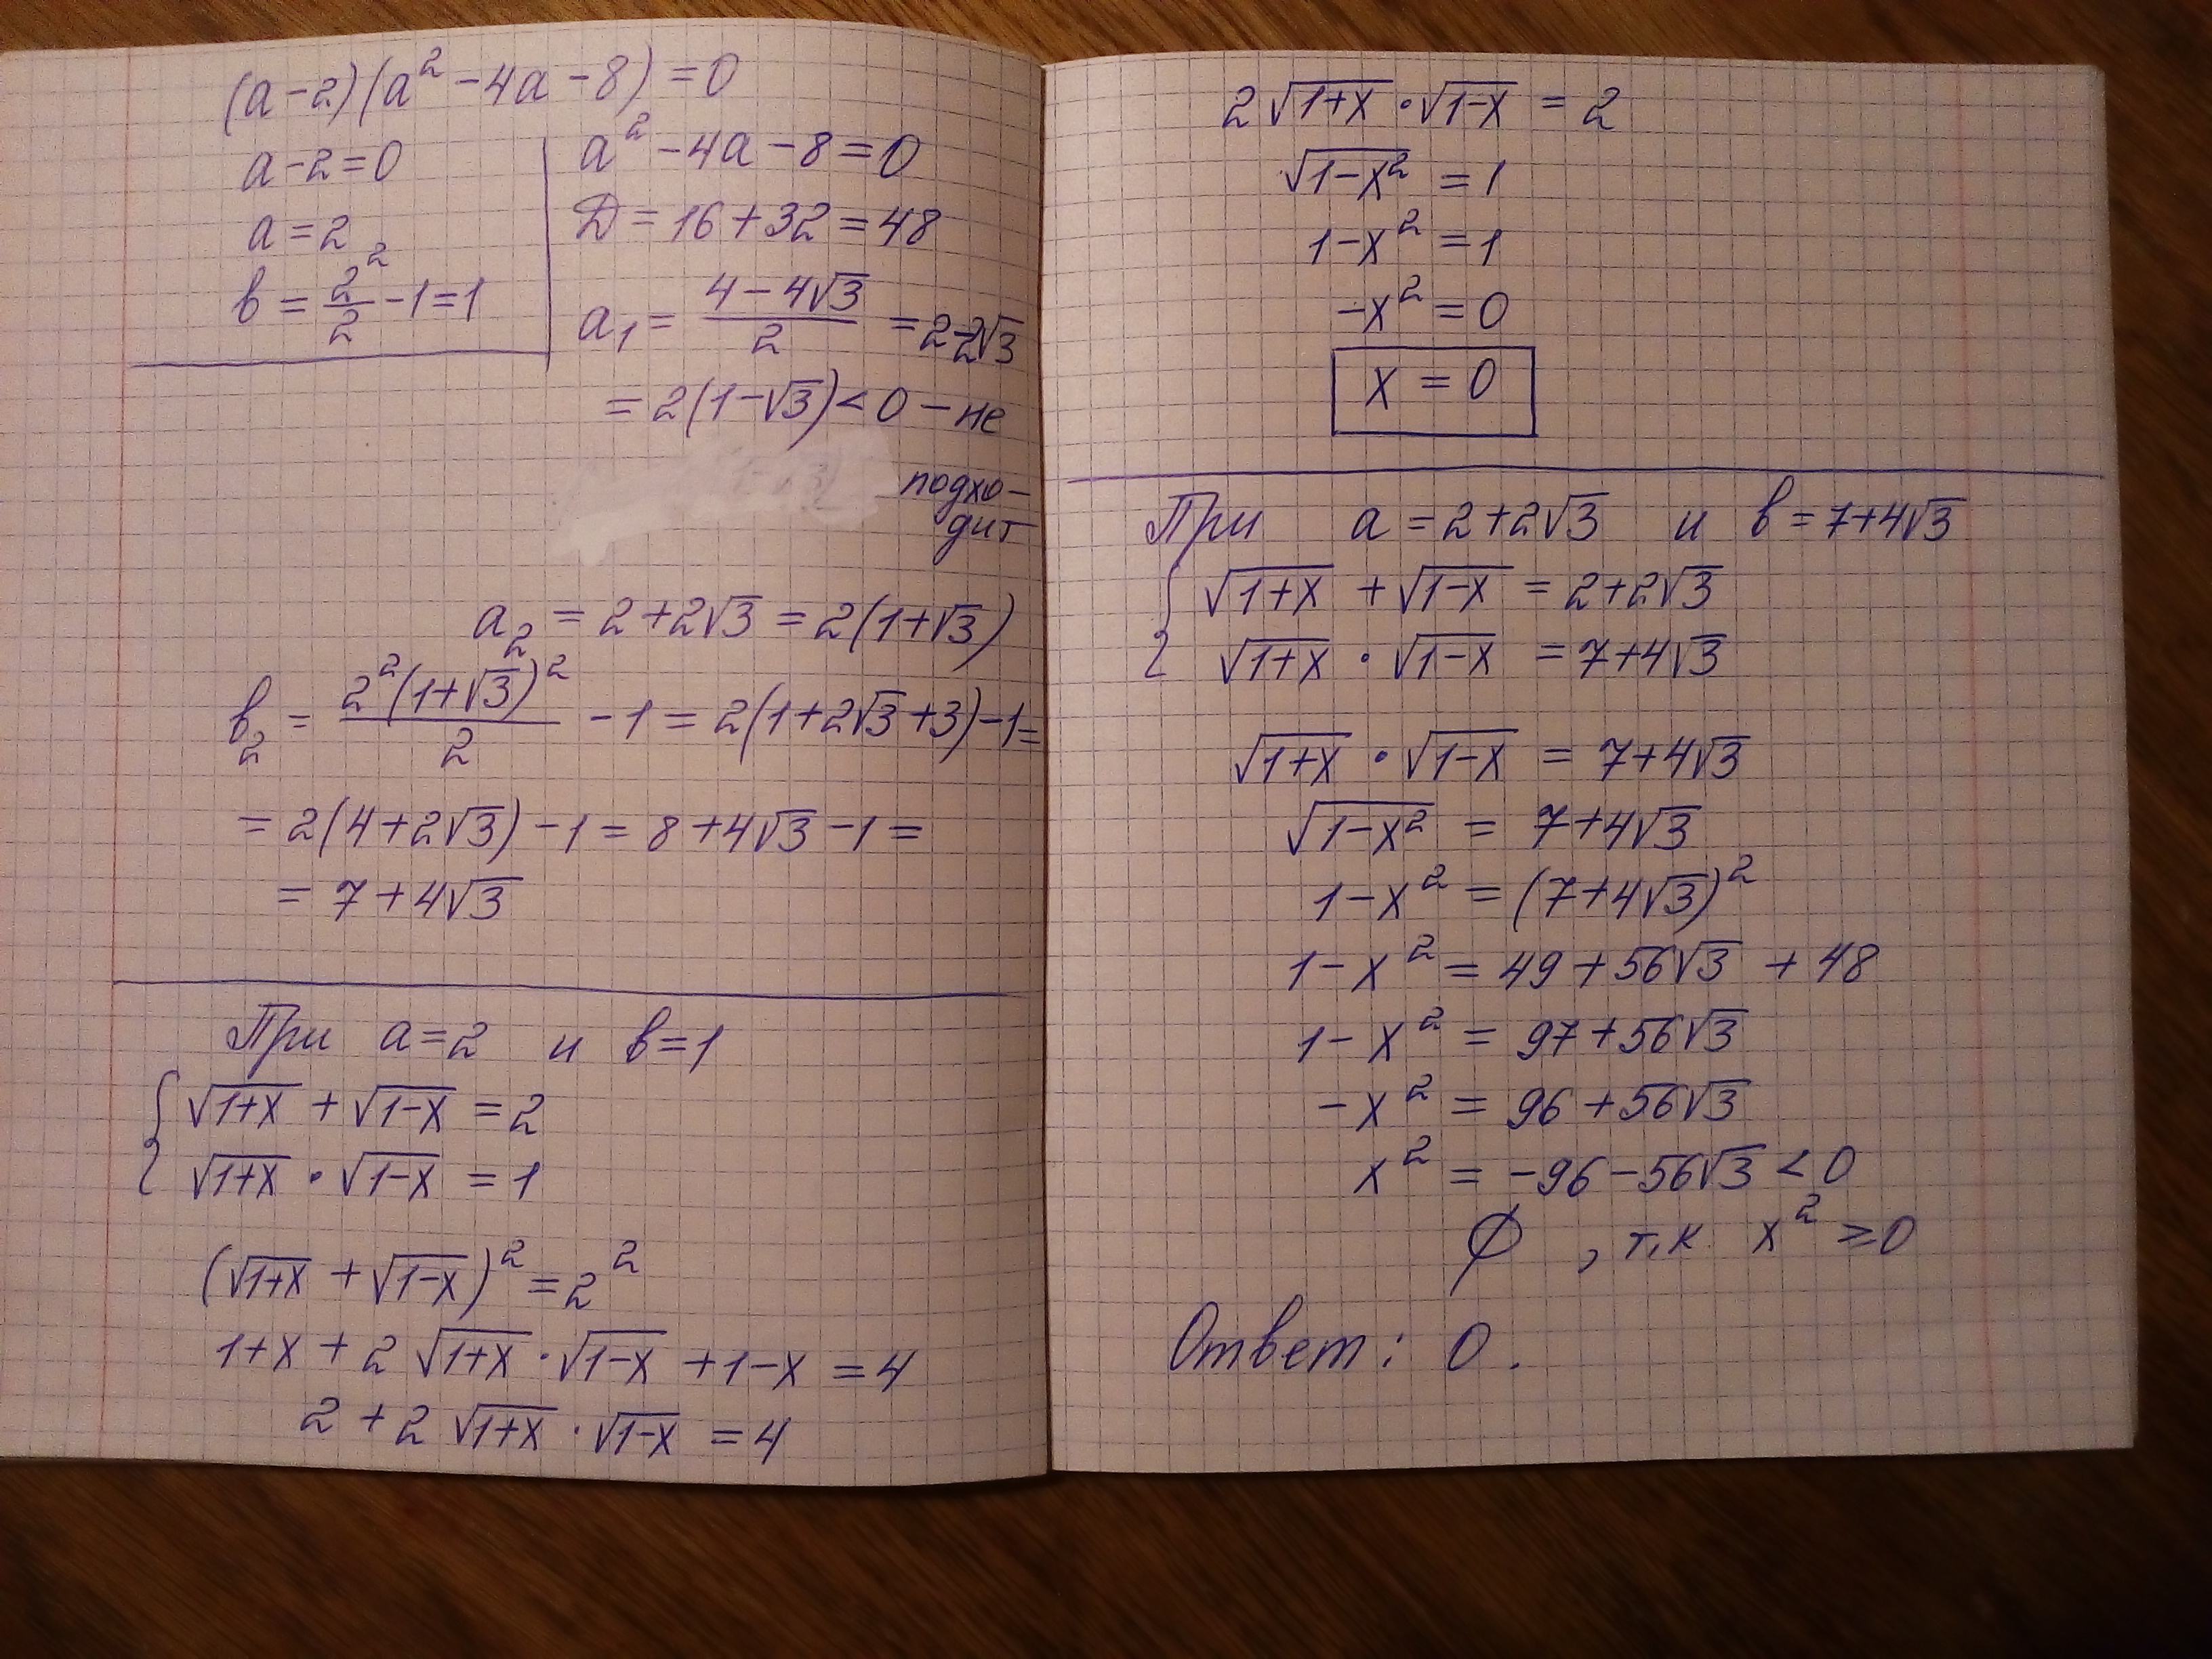 (a-2)(a²-4a-8)=0
a-2=0
a=2
b=2²/2-1=1
a²-4a-8=0
D=16+32=48
a₁=(4-4√3)/2=2-2√3
=2(1-√3)<0-не
подхо-
дит
a₂=2+2√3=2(1+√3)
b₂=2²(1+√3)²/2-1=2(1+2√3+3)-1=
=2(4+2√3)-1=8+4√3-1=
=7+4√3
При a=2 и b=1
{√(1+x)+√(1-x)=2
√(1+x)·√(1-x)=1
(√(1+x)+√(1-x))²=2²
1+x+2√(1+x)·√(1-x)+1-x=4
2+2√(1+x)·√(1-x)=4
2√(1+x)·√(1-x)=2
√(1-x²)=1
1-x²=1
-x²=0
x=0
При a=2+2√3 и b=7+4√3
{√(1+x)+√(1-x)=2+2√3
√(1+x)·√(1-x)=7+4√3
√(1+x)·√(1-x)=7+4√3
√(1-x²)=7+4√3
1-x²=(7+4√3)²
1-x²=49+56√3+48
1-x²=97+56√3
-x²=96+56√3
x²=-96-56√3<0
∅, т.к. x²≥0
Ответ: 0.